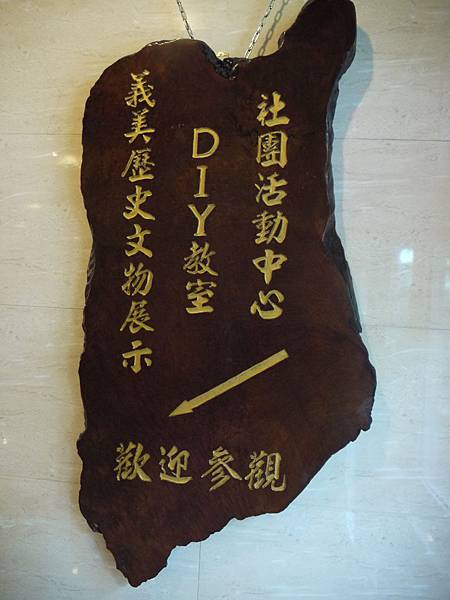 社團活動中心
DIY教室
義美歷史文物展示
歡迎參觀